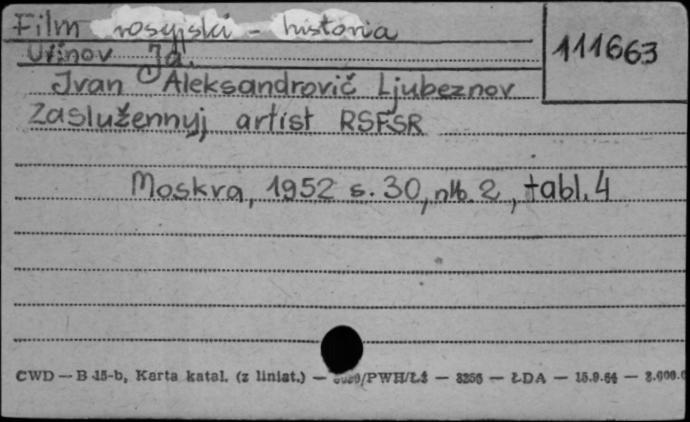 Film rosyjski - historia
111663
Urinov Ja.
Ivan Aleksandrovič Ljubeznov
Zaslužennyj artist RSFSR
Moskva, 1952 s. 30, nlb. 2, tabl. 4
CWD — B 15-b, Karta katal. (z liniat.) — /PWH/Łż — 3256 — ŁDA — 15.9.64 — 3.000.0